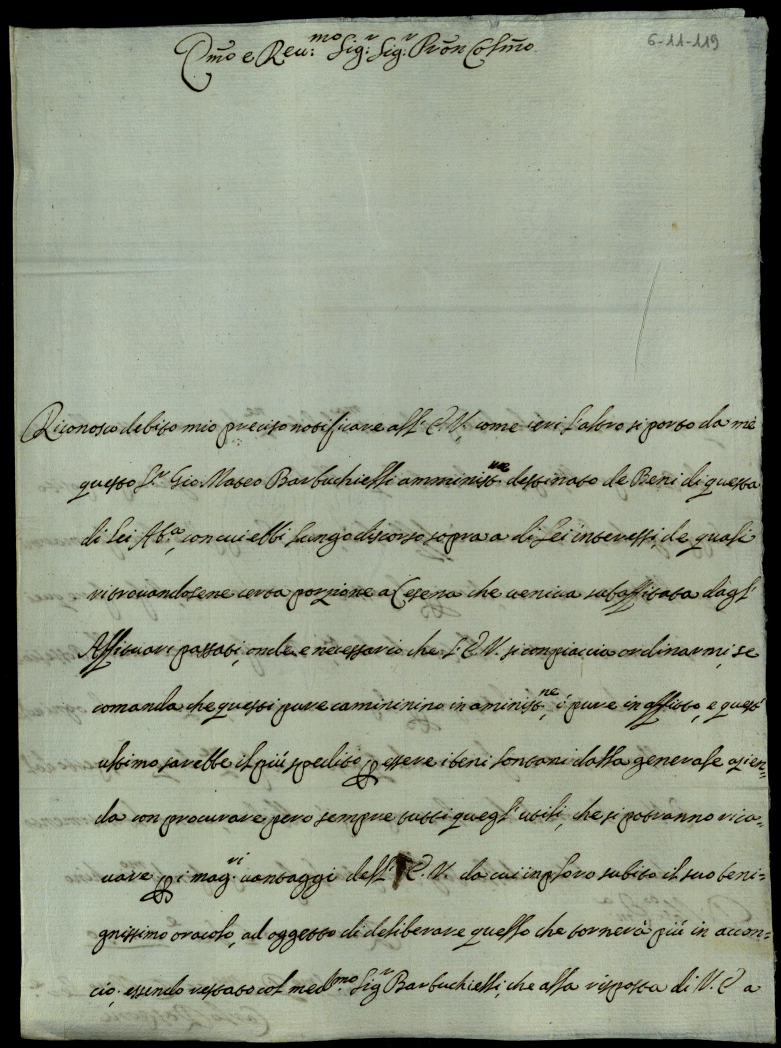 6-11-119
Emo e Reu:mo Sig:r Sig:r Pron Colmo
Riconosco debito mio preciso notificare all'E.V. come ieri l'altro si portò da mè
questo Sr Gio Matteo Barbuchielli amministre destinato de Beni di questa
di Lei Aba, con cui ebbi lungo discorso sopra a di Lei interessi, de quali
ritrovandosene certa porzione a Cesena che veniva subaffittata dagl'
Affituari passati, onde e necessario che l'E.V. si conpiaccia ordinarmi, se
comanda che questi pure camininino in aministne, ò pure in affitto, e quest'
ultimo sarebbe il più spedito p essere i beni lontani dalla generale azien=
da con procurare però sempre tutti quegl'utili, che si potranno rica=
uare p i magri vantaggi dell'E.V. da cui inploro subito il suo beni=
gnissimo oracolo, ad oggetto di deliberare quello che tornerà più in accon=
cio, essendo restato col medmo Sigr Barbuchielli, che alla risposta di V.E a